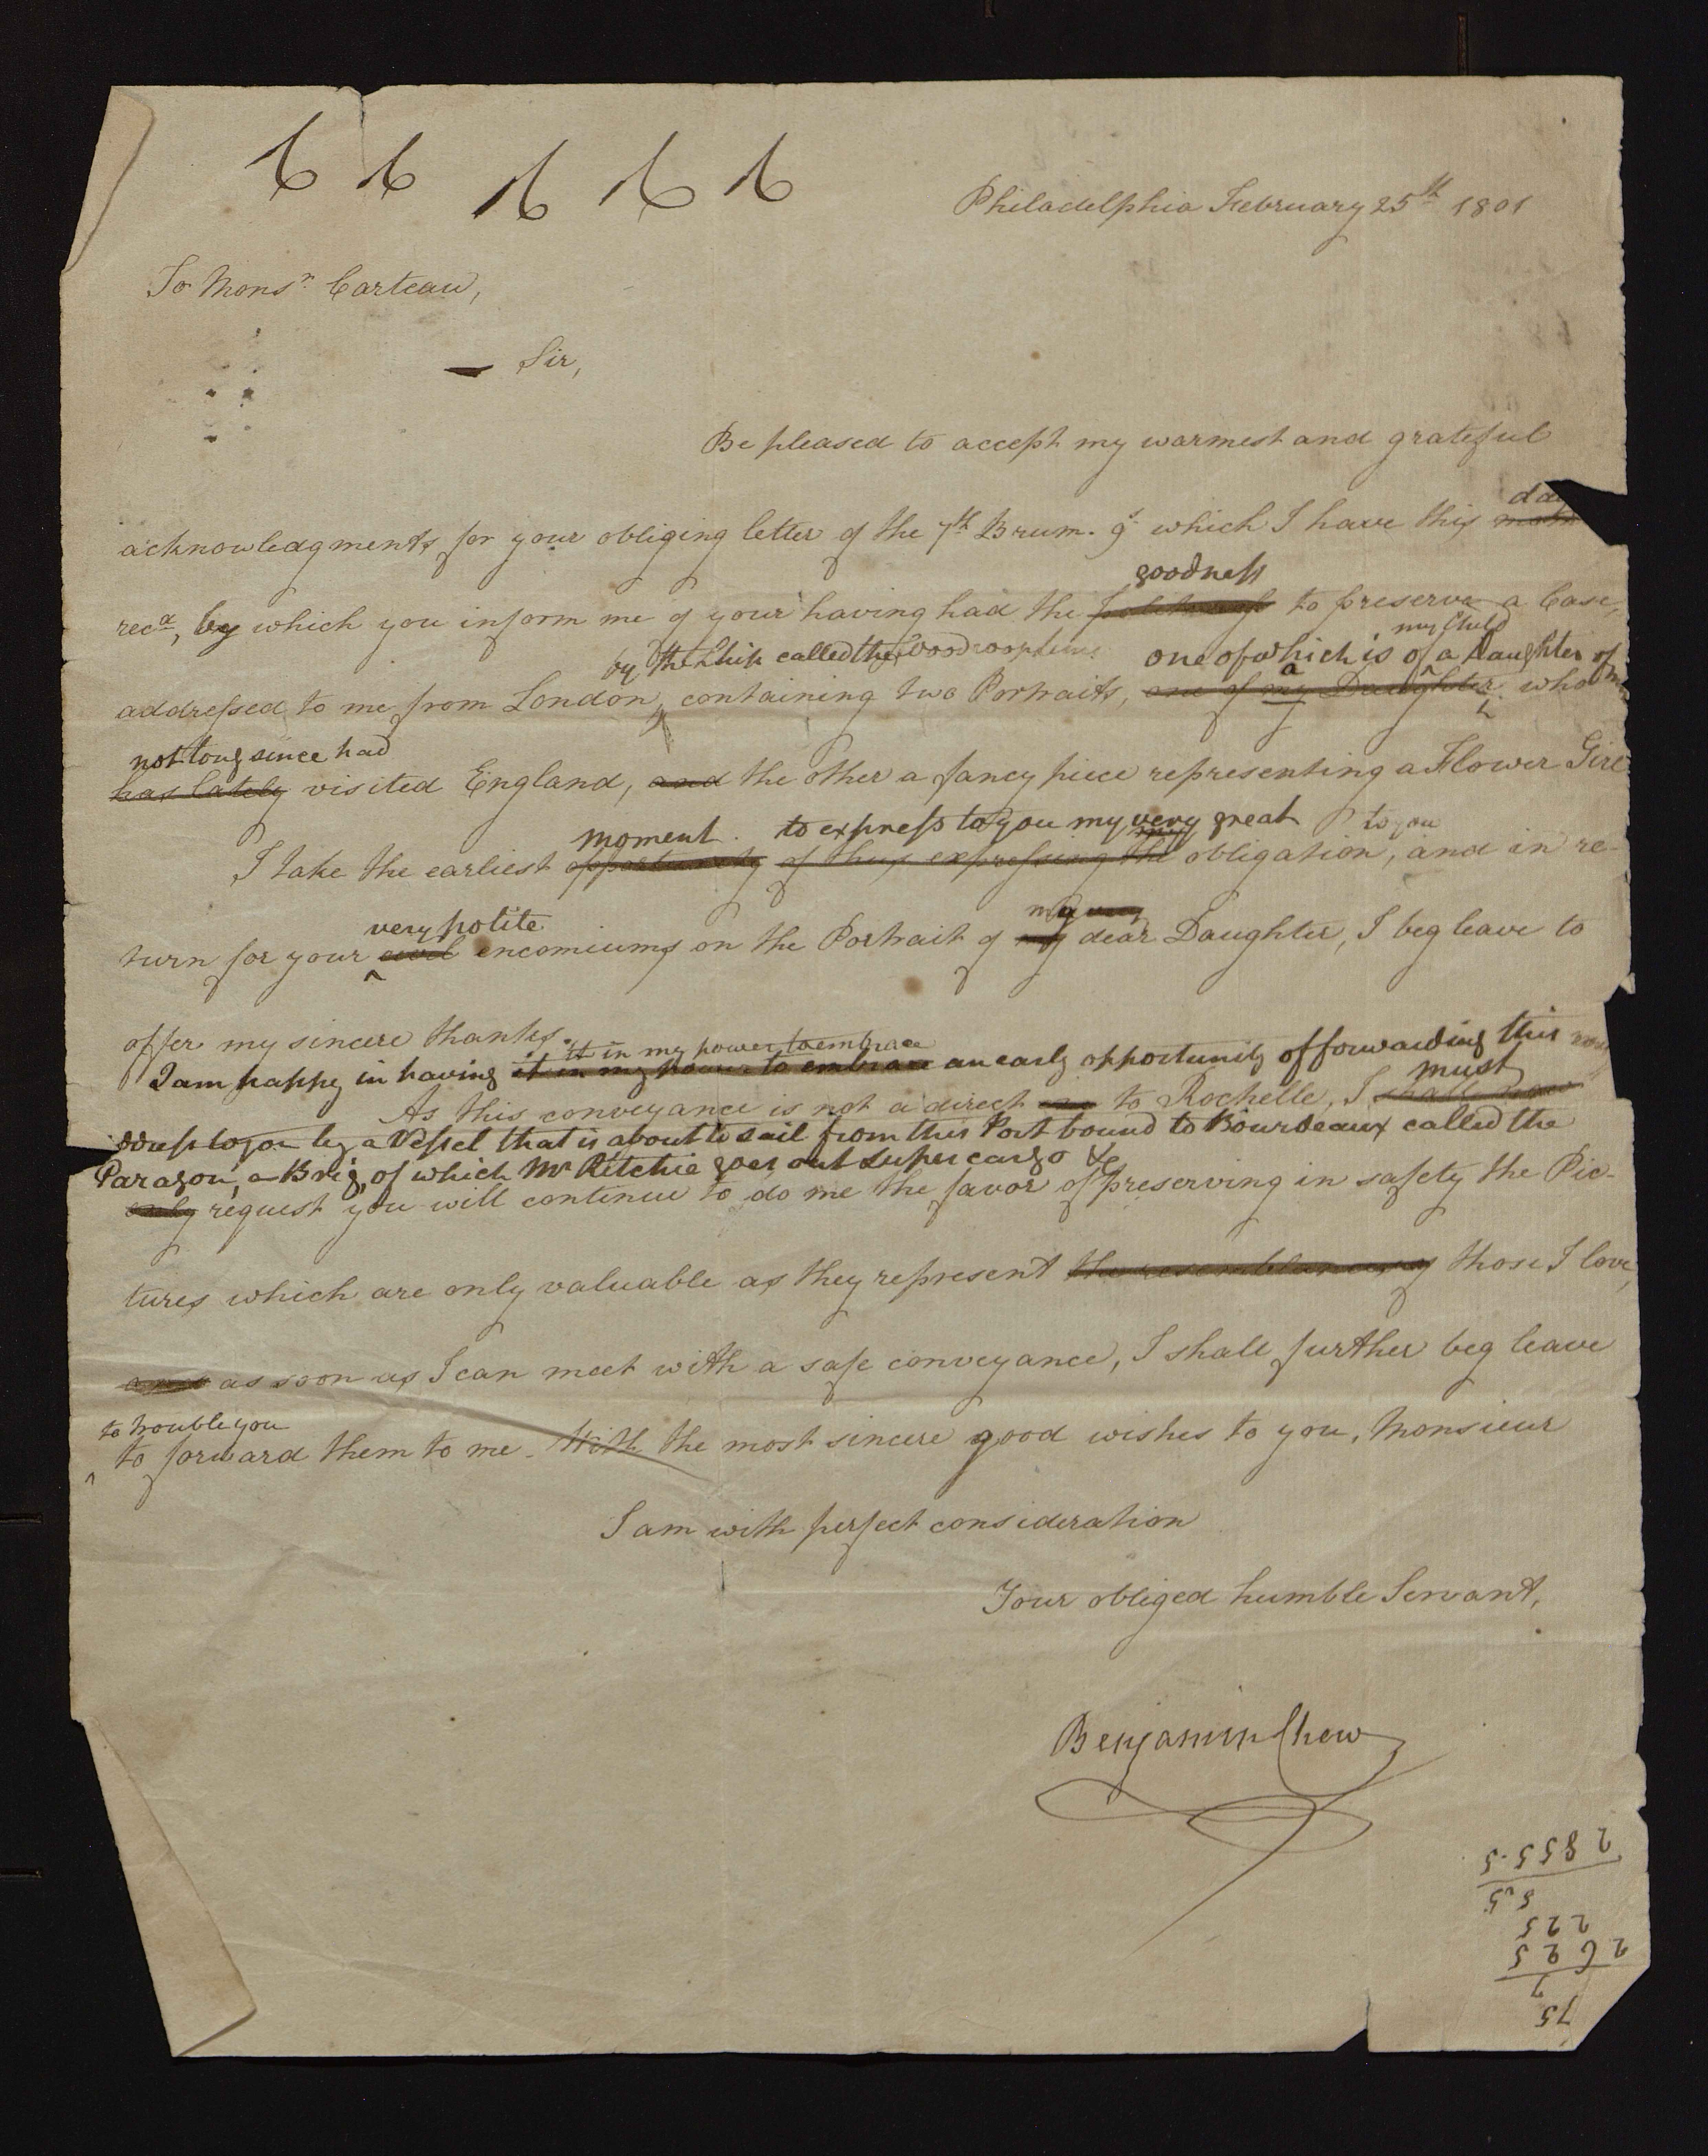 Philadelphia February 25th 1801
To Monsr. Carteau,
Sir,
Be pleased to accept my warmest and grateful
day
acknowledgments for your obliging letter of the 7th Brum. 9 which I have this
goodness
recd, by which you inform me of your having had the to preserve a Case,
my Child
by the Ship called the one of which is of a Daughter of
addressed to me from London, containing two Portraits, one of my Daughter, who
not long since had
has lately visited England, and the other a fancy piece representing a Flower Girl
moment. to express to you my very great to you
I take the earliest opportunity of thus expressing the obligation, and in re-
very polite my very
turn for your civil encomiums on the Portrait of my dear Daughter, I beg leave to
offer my sincere thanks.
it in my power to embrace
I am happy in having it in my power to embrace an early opportunity of forwarding this
must
As this conveyance is not a direct one to Rochelle, I shall now
ddress to you by a Vessel that is about to sail from this Port bound to Bourdeaux called the
Paragon, a Brig, of which Mr Ritchie goes out Super cargo &c
only request you will continue to do me the favor of preserving in safety the Pic-
tures which are only valuable as they represent the resemblances of those I love,
and as soon as I can meet with a safe conveyance, I shall further beg leave
to trouble you
to forward them to me. With the most sincere good wishes to you, Monsieur
I am with perfect consideration
Your obliged humble Servant,
Benjamin Chew
75
7
2625
225
5.5
2855.5